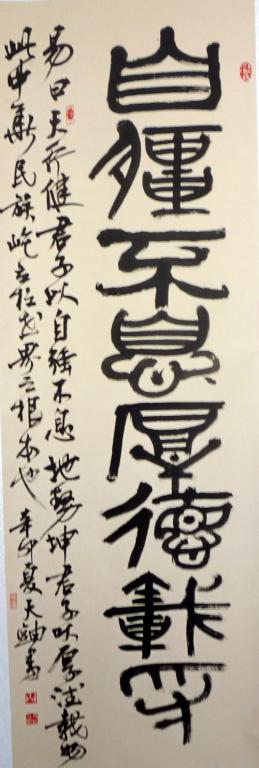 自彊不息厚德載物
易曰天行健君子以自強不息地勢坤君子以厚德載物
此中華民族屹立於世界之根本也 辛卯夏天